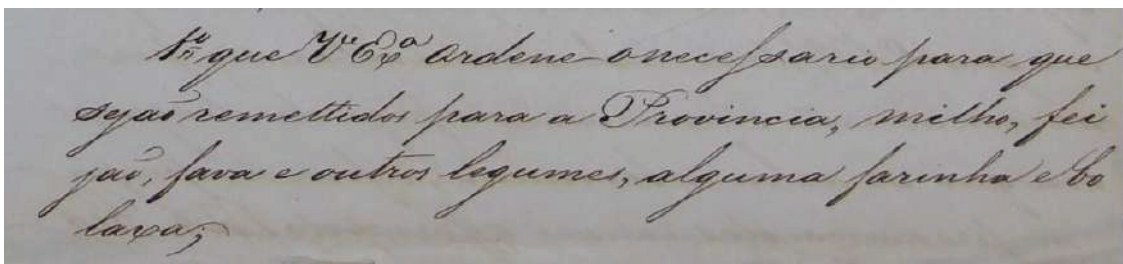 1º que Vª Exª ordene o necessario para que
sejaõ remettidos para a Provincia, milho, fei
jaõ, fava e outros legumes, alguma farinha e bo
laxa;